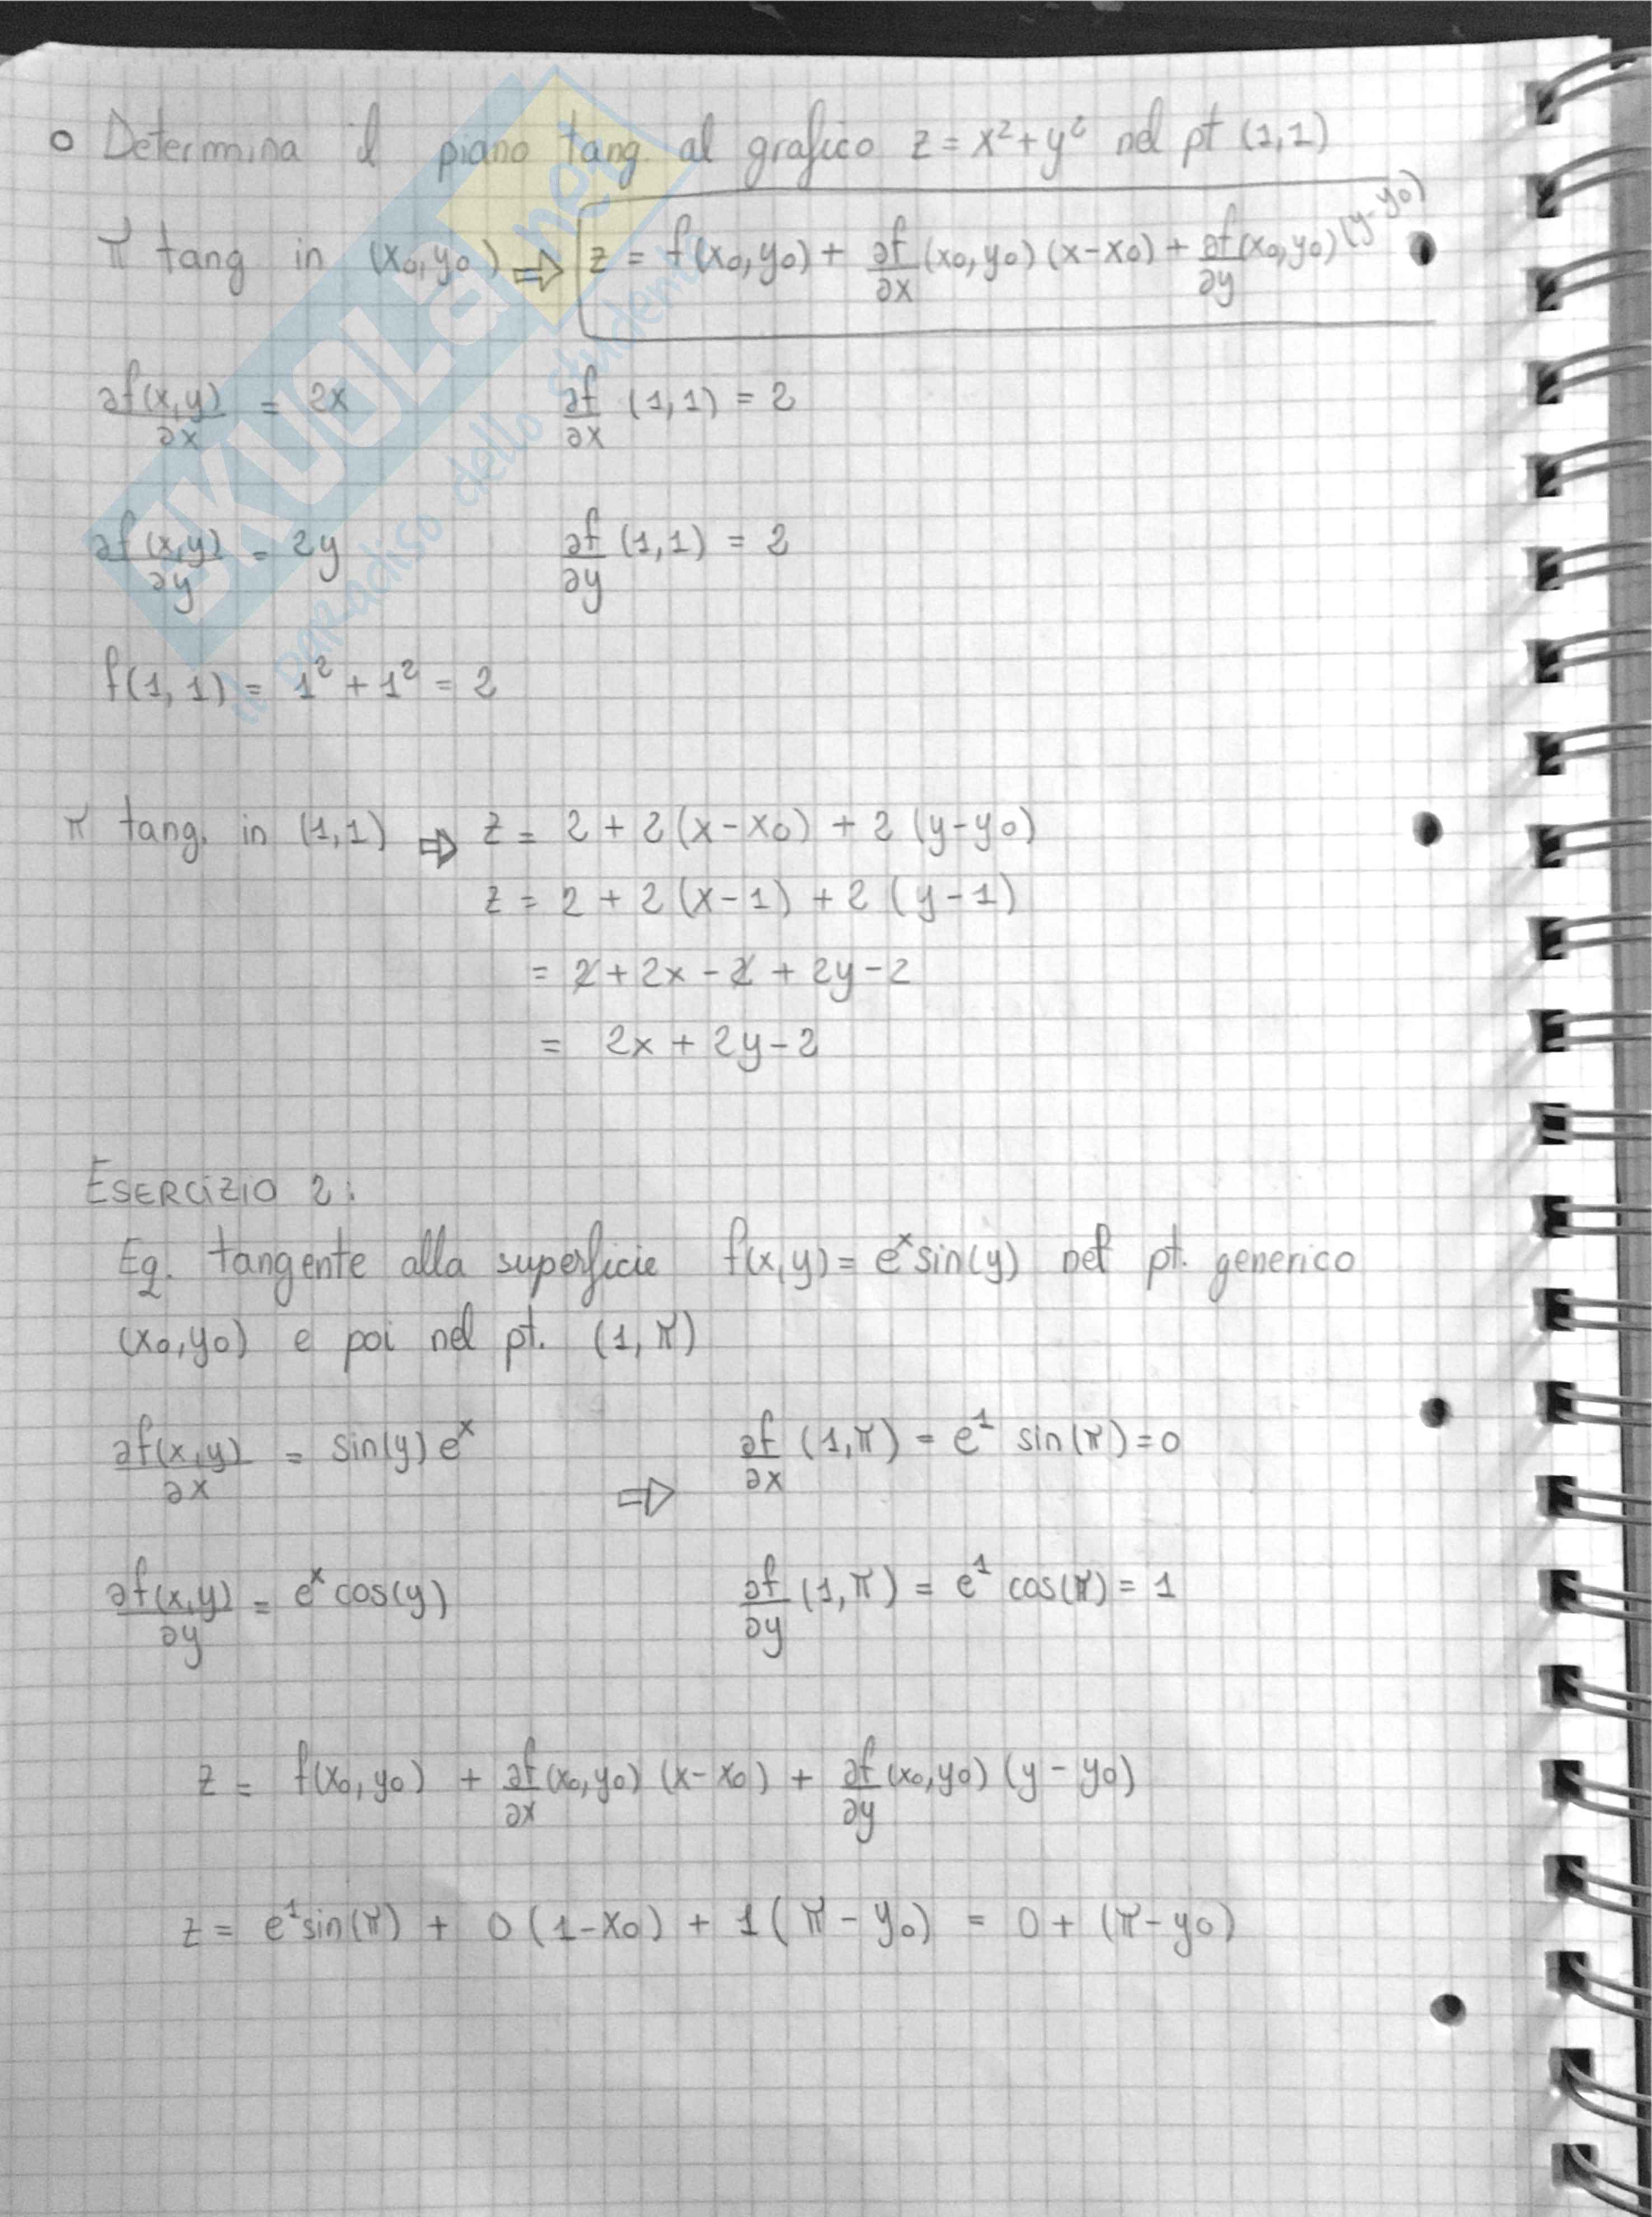 o Determina il piano tang. al grafico z = x² + y² nel pt (1,1)
π tang in (x₀,y₀) ⇒ z = f(x₀,y₀) + ∂f/∂x (x₀,y₀) (x-x₀) + ∂f/∂y (x₀,y₀) (y-y₀)
∂f(x,y)/∂x = 2x ∂f/∂x (1,1) = 2
∂f(x,y)/∂y = 2y ∂f/∂y (1,1) = 2
f(1,1) = 1² + 1² = 2
π tang. in (1,1) ⇒ z = 2 + 2(x-x₀) + 2(y-y₀)
z = 2 + 2(x-1) + 2(y-1)
= 2 + 2x - 2 + 2y - 2
= 2x + 2y - 2
ESERCIZIO 2:
Eq. tangente alla superficie f(x,y) = eˣ sin(y) nel pt. generico
(x₀,y₀) e poi nel pt. (1,π)
∂f(x,y)/∂x = sin(y) eˣ ⇒ ∂f/∂x (1,π) = e¹ sin(π) = 0
∂f(x,y)/∂y = eˣ cos(y) ∂f/∂y (1,π) = e¹ cos(π) = 1
z = f(x₀,y₀) + ∂f/∂x (x₀,y₀) (x-x₀) + ∂f/∂y (x₀,y₀) (y-y₀)
z = e¹ sin(π) + 0(1-x₀) + 1(π-y₀) = 0 + (π-y₀)
SKUOLA.net
il paradiso dello studente